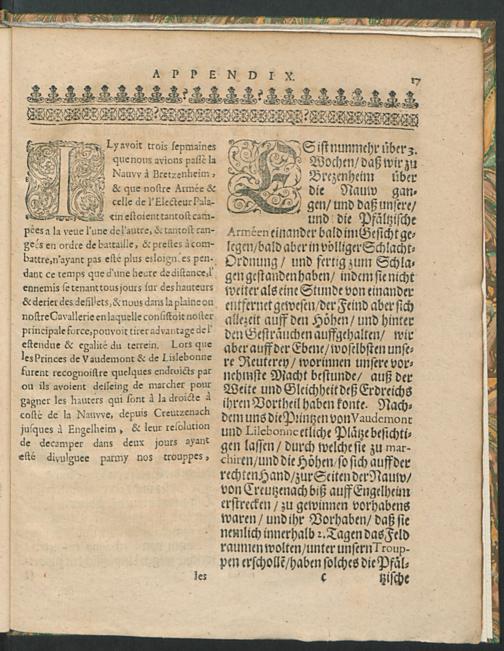 APPENDIX.
17
ILy avoit trois sepmaines
que nous avions passé la
Nauvv à Bretzenheim,
& que nostre Armée &
celle de l'Electeur Pala-
tin estoient tantost cam-
pées a la veue l'une de l'autre, & tantost ran-
geés en ordre de battaille, & prestes à com-
battre, n'ayant pas esté plus esloignées pen-
dant ce temps que d'une heure de distance, l'
ennemis se tenant tous jours sur des hauteurs
& derier des defilets, & nous dans la plaine ou
nostre Cavallerie en laquelle consistoit noster
principale force, pouvoit tirer advantage de l'
estendue & egalité du terrein. Lors que
les Princes de Vaudemont & de Lislebonne
furent recognoistre quelques endroicts par
ou ils avoient desseing de marcher pour
gagner les hauters qui sont à la droicte à
costé de la Nauvve, depuis Creutzenach
jusques à Engelheim, & leur resolution
de decamper dans deux jours ayant
esté divulguee parmy nos trouppes,
les
ES ist nunmehr über 3.
Wochen / daß wir zu
Brezenheim über
die Nauw gan-
gen / und daß unsere /
und die Pfältzische
Arméen einander bald im Gesicht ge-
legen / bald aber in völliger Schlacht-
Ordnung / und fertig zum Schla-
gen gestanden haben / indem sie nicht
weiter als eine Stunde von einander
entfernet gewesen / der Feind aber sich
allezeit auff den Höhen / und hinter
den Gesträuchen auffgehalten / wir
aber auff der Ebene / woselbsten unse-
re Reuterey / worinnen unsere vor-
nehmste Macht bestunde / auß der
Weite und Gleichheit deß Erdreichs
ihren Vortheil haben konte. Nach-
dem uns die Printzen von Vaudemont
und Lilebonne etliche Plätze besichti-
gen lassen / durch welche sie zu mar-
chiren / und die Höhen / so sich auff der
rechten Hand / zur Seiten der Nauw /
von Creutzenach biß auff Engelheim
erstrecken / zu gewinnen vorhabens
waren / und ihr Vorhaben / daß sie
nemlich innerhalb 2. Tagen das Feld
raumen wolten / unter unsern Troup-
pen erschollē / haben solches die Pfäl-
c
tzische